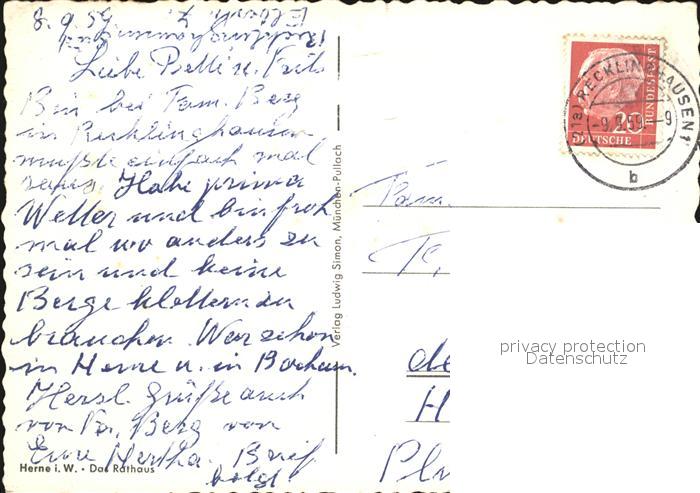 8. 9. 59
Liebe Betti u. Fritz
Bin bei Fam. Berg
in Recklinghausen
mußte einfach mal
raus. Habe prima
Wetter und bin froh
mal wo anders zu
sein und keine
Berge klettern zu
brauchen. War schon
in Herne u. in Bochum.
Herzl. Grüße auch
von Fr. Berg von
Eure Hertha. Brief
folgt
Herne i. W. • Das Rathaus
Verlag Ludwig Simon, München-Pullach
Fam.
de
H
(21a) RECKLINGHAUSEN 1
-9.9.59.-9
b
DEUTSCHE
BUNDESPOST
privacy protection
Datenschutz